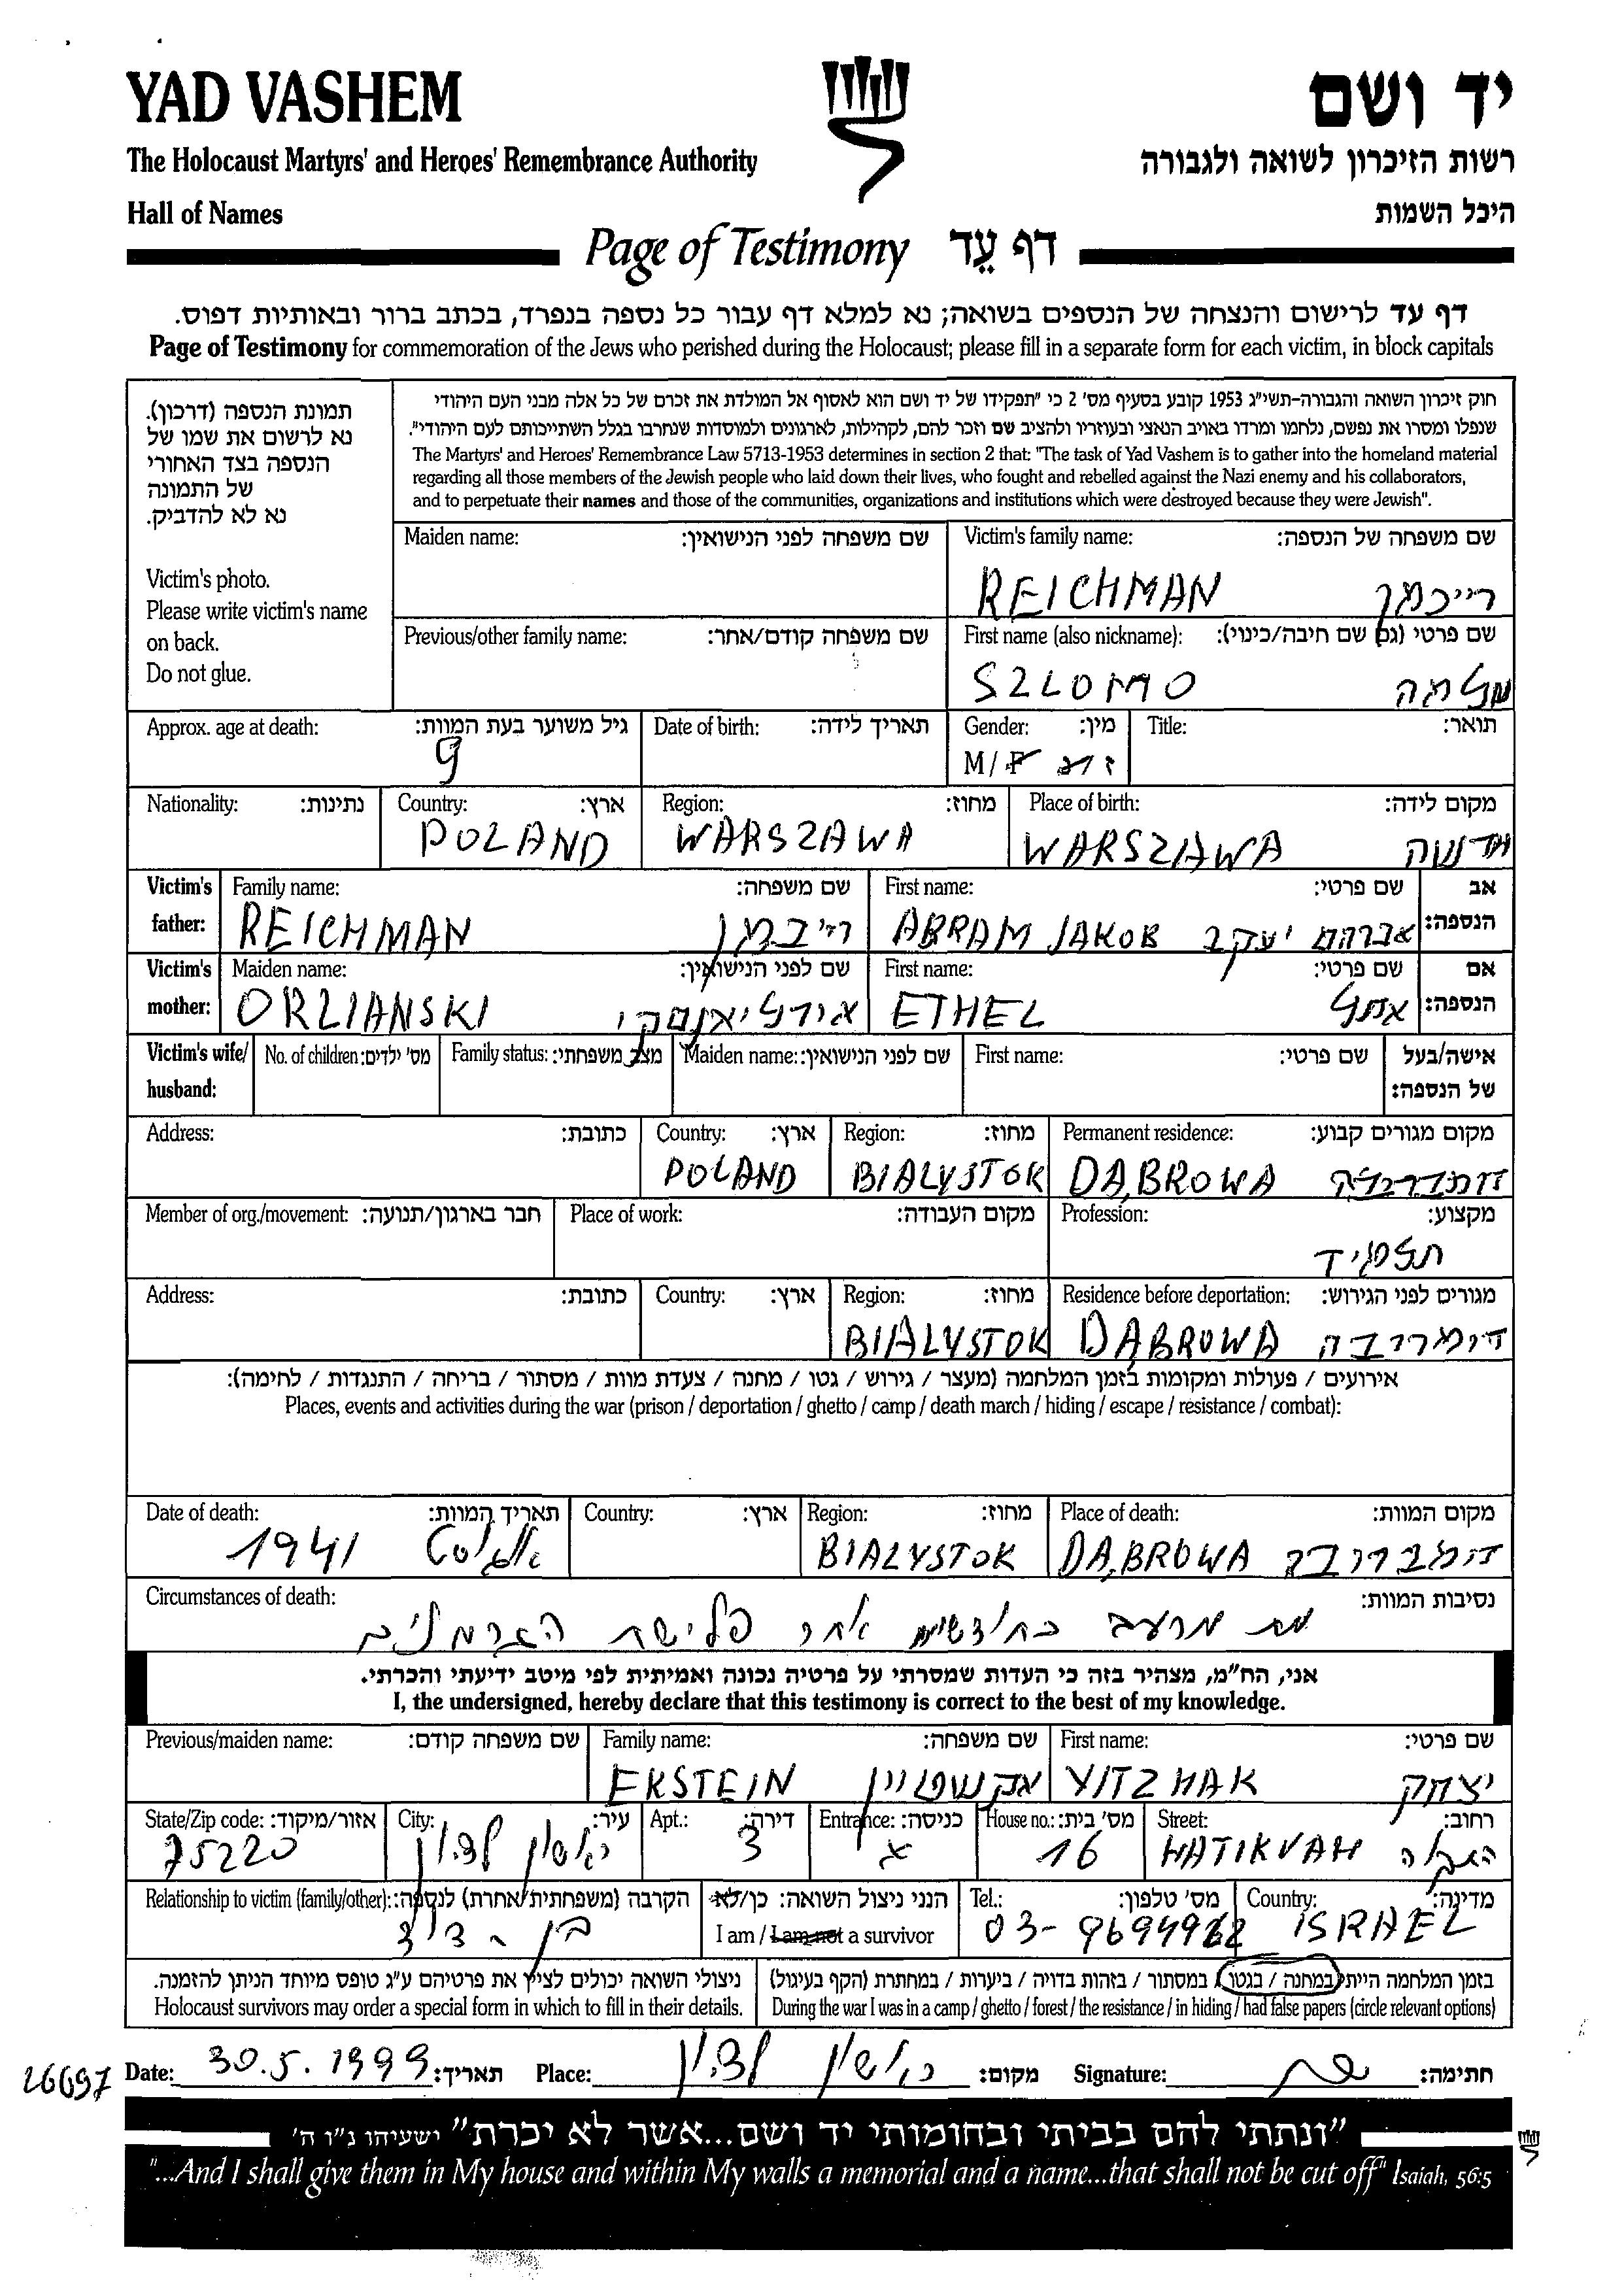 YAD VASHEM
יד ושם
The Holocaust Martyrs' and Heroes' Remembrance Authority
רשות הזיכרון לשואה ולגבורה
Hall of Names
היכל השמות
Page of Testimony דף עֵד
דף עד לרישום והנצחה של הנספים בשואה; נא למלא דף עבור כל נספה בנפרד, בכתב ברור ובאותיות דפוס.
Page of Testimony for commemoration of the Jews who perished during the Holocaust; please fill in a separate form for each victim, in block capitals
תמונת הנספה (דרכון).
נא לרשום את שמו של
הנספה בצד האחורי
של התמונה
נא לא להדביק.
Victim's photo.
Please write victim's name
on back.
Do not glue.
חוק זיכרון השואה והגבורה-תשי"ג 1953 קובע בסעיף מס' 2 כי "תפקידו של יד ושם הוא לאסוף אל המולדת את זכרם של כל אלה מבני העם היהודי
שנפלו ומסרו את נפשם, נלחמו ומרדו באויב הנאצי ובעוזריו ולהציב שם וזכר להם, לקהילות, לארגונים ולמוסדות שנחרבו בגלל השתייכותם לעם היהודי".
The Martyrs' and Heroes' Remembrance Law 5713-1953 determines in section 2 that: "The task of Yad Vashem is to gather into the homeland material
regarding all those members of the Jewish people who laid down their lives, who fought and rebelled against the Nazi enemy and his collaborators,
and to perpetuate their names and those of the communities, organizations and institutions which were destroyed because they were Jewish".
Maiden name: שם משפחה לפני הנישואין:
Victim's family name: שם משפחה של הנספה:
REICHMAN רייכמן
Previous/other family name: שם משפחה קודם/אחר:
First name (also nickname): שם פרטי (גם שם חיבה/כינוי):
SZLOMO שלמה
Approx. age at death: גיל משוער בעת המוות:
9
Date of birth: תאריך לידה:
Gender: מין:
M / F ז
Title: תואר:
Nationality: נתינות:
Country: ארץ:
POLAND
Region: מחוז:
WARSZAWA
Place of birth: מקום לידה:
WARSZAWA ורשה
Victim's father:
Family name: שם משפחה:
REICHMAN רייכמן
First name: שם פרטי:
ABRAM JAKOB אברהם יעקב
אב הנספה:
Victim's mother:
Maiden name: שם לפני הנישואין:
ORLIANSKI אורליאנסקי
First name: שם פרטי:
ETHEL אתל
אם הנספה:
Victim's wife/ husband:
No. of children: מס' ילדים:
Family status: מצב משפחתי:
Maiden name: שם לפני הנישואין:
First name: שם פרטי:
אישה/בעל של הנספה:
Address: כתובת:
Country: ארץ:
POLAND
Region: מחוז:
BIALYSTOK
Permanent residence: מקום מגורים קבוע:
DĄBROWA
Member of org./movement: חבר בארגון/תנועה:
Place of work: מקום העבודה:
Profession: מקצוע:
תלמיד
Address: כתובת:
Country: ארץ:
Region: מחוז:
BIALYSTOK
Residence before deportation: מגורים לפני הגירוש:
DĄBROWA
אירועים / פעולות ומקומות בזמן המלחמה (מעצר / גירוש / גטו / מחנה / צעדת מוות / מסתור / בריחה / התנגדות / לחימה):
Places, events and activities during the war (prison / deportation / ghetto / camp / death march / hiding / escape / resistance / combat):
Date of death: תאריך המוות:
1941 אוגוסט
Country: ארץ:
Region: מחוז:
BIALYSTOK
Place of death: מקום המוות:
DĄBROWA דומברובה
Circumstances of death: נסיבות המוות:
מת מרעב בחודשים אחר פלישת הגרמנים
אני, הח"מ, מצהיר בזה כי העדות שמסרתי על פרטיה נכונה ואמיתית לפי מיטב ידיעתי והכרתי.
I, the undersigned, hereby declare that this testimony is correct to the best of my knowledge.
Previous/maiden name: שם משפחה קודם:
Family name: שם משפחה:
EKSTEIN אקשטיין
First name: שם פרטי:
YITZHAK יצחק
State/Zip code: אזור/מיקוד:
75220
City: עיר:
ראשון לציון
Apt.: דירה:
3
Entrance: כניסה:
א
House no.: מס' בית:
16
Street: רחוב:
HATIKVAH
Relationship to victim (family/other): הקרבה (משפחתית/אחרת) לנספה:
בן - דוד
הנני ניצול השואה: כן/לא
I am / I am not a survivor
Tel.: מס' טלפון:
03-9694962
Country: מדינה:
ISRAEL
ניצולי השואה יכולים לציין את פרטיהם ע"ג טופס מיוחד הניתן להזמנה.
Holocaust survivors may order a special form in which to fill in their details.
בזמן המלחמה הייתי במחנה / בגטו / במסתור / בזהות בדויה / ביערות / במחתרת (הקף בעיגול)
During the war I was in a camp / ghetto / forest / the resistance / in hiding / had false papers (circle relevant options)
26697
Date: 30.5.1999 תאריך:
Place: ראשון לציון מקום:
Signature: חתימה:
"ונתתי להם בביתי ובחומותי יד ושם...אשר לא יכרת" ישעיהו נ"ו ה'
"...And I shall give them in My house and within My walls a memorial and a name...that shall not be cut off" Isaiah, 56:5